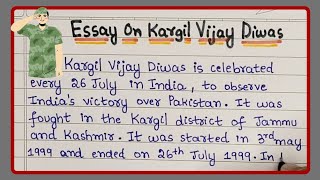 Essay On Kargil Vijay Diwas
Kargil Vijay Diwas is celebrated
every 26 July in India, to observe
India's victory over Pakistan. It was
fought in the Kargil district of Jammu
and Kashmir. It was started in 3rd may
1999 and ended on 26th July 1999. In